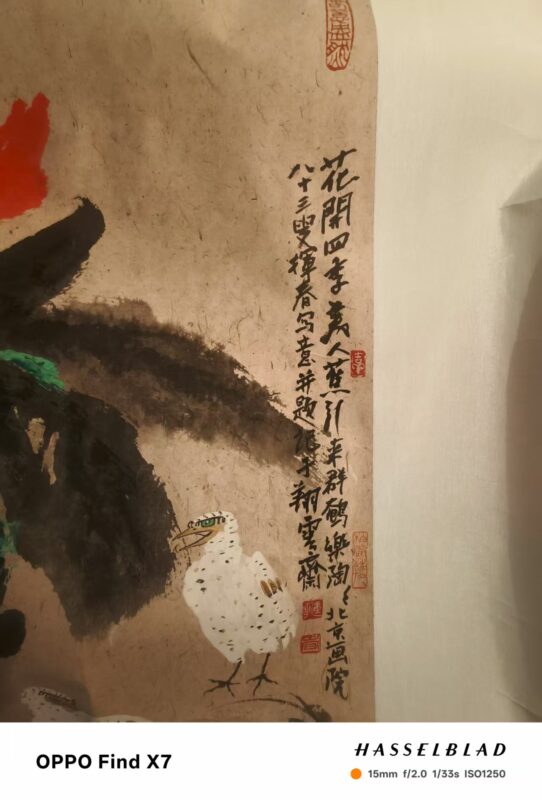 花開四季美人蕉引来群鶴樂陶〻北京画院
八十三叟揮春写意并题于翔雲齋
OPPO Find X7
HASSELBLAD
15mm f/2.0 1/33s ISO1250